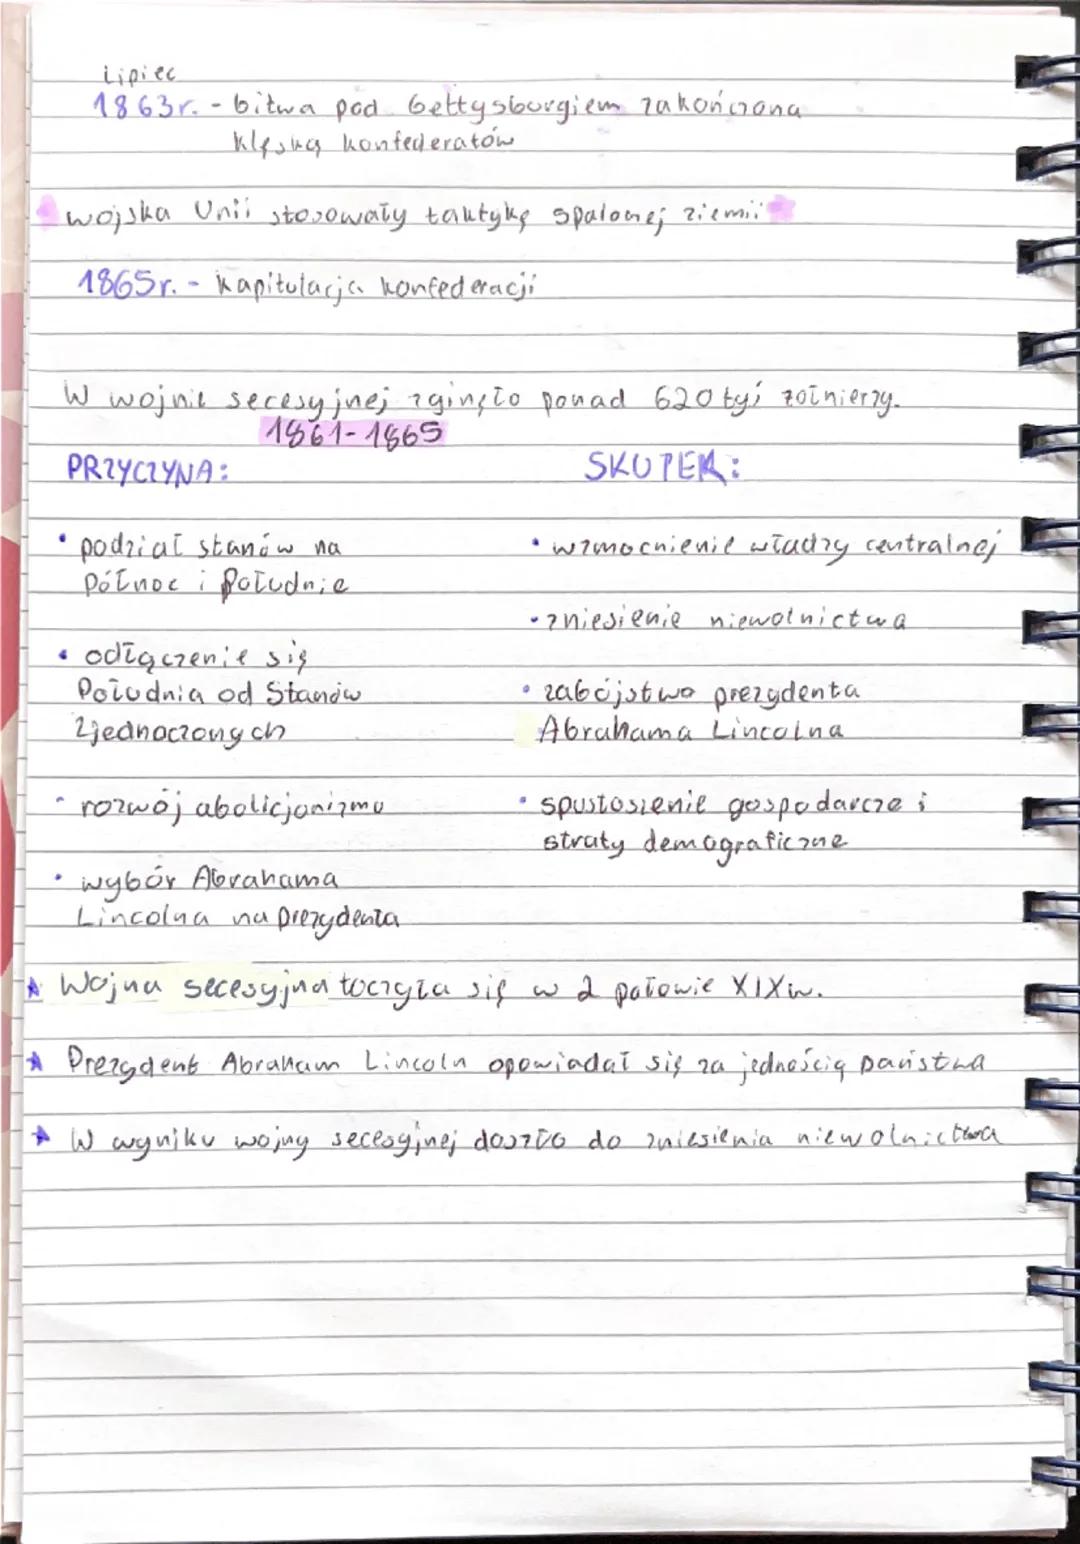 Lipiec
1863r. - bitwa pod Gettysburgiem zakończona
klęską konfederatów
wojska Unii stosowały taktykę spalonej ziemii
1865r. - kapitulacja konfederacji
W wojnie secesyjnej zginęło ponad 620 tyś żołnierzy.
1861-1865
PRZYCZYNA:
SKUTEK:
• podział stanów na
Północ i Południe
• odłączenie się
Południa od Stanów
Zjednoczonych
• rozwój abolicjonizmu
• wybór Abrahama
Lincolna na prezydenta
• wzmocnienie władzy centralnej
• zniesienie niewolnictwa
• zabójstwo prezydenta
Abrahama Lincolna
• spustoszenie gospodarcze i
straty demograficzne
★ Wojna secesyjna toczyła się w 2 połowie XIXw.
★ Prezydent Abraham Lincoln opowiadał się za jednością państwa
★ W wyniku wojny secesyjnej doszło do zniesienia niewolnictwa